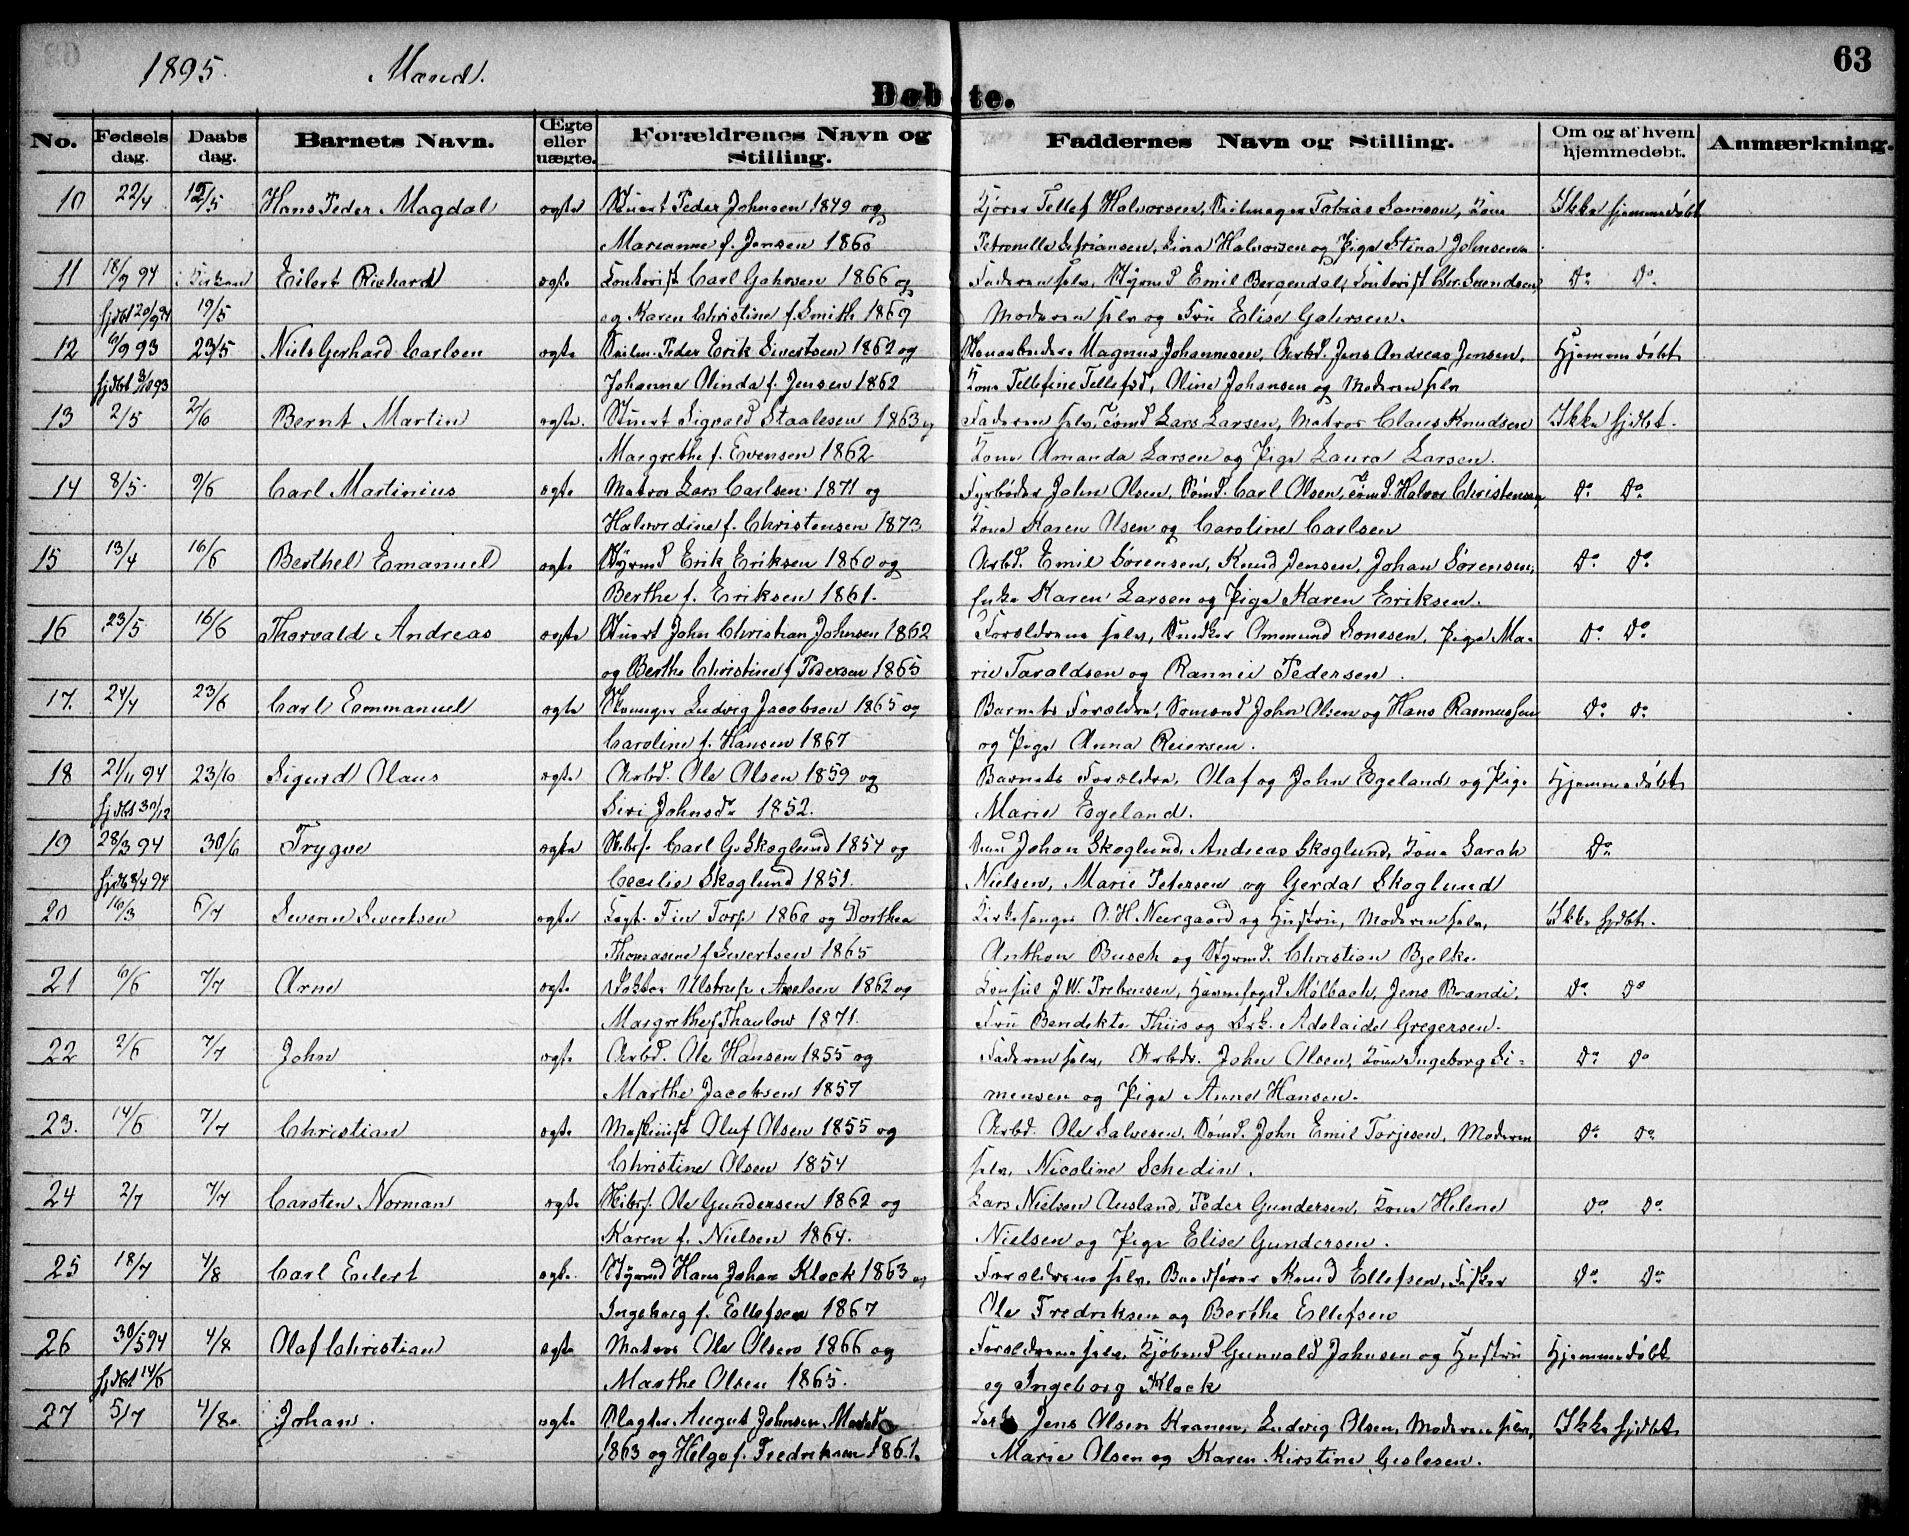 1895. Mænd. 63
Døbte.
No. Fødsels dag. Daabs dag. Barnets Navn. Œgte eller uægte. Forældrenes Navn og Stilling. Faddernes Navn og Stilling. Om og af hvem hjemmedøbt. Anmærkning.
10 22/4 15/5 Hans Peder Magdal ægte Stuert Peder Johnsen 1849 og Tellef Halvorsen, Seilmager Tobias Samson, Kone Ikke hjemmedøbt
Marianne f. Jensen 1860 Petronille Sina Halvorsen og Pige Stina Johnsen
11 18/9 94 i Kirken Eilert Richard ægte Kontorist Carl Gahrsen 1866 og Faderen selv, Styrmd Emil Bergendal, Kontorist Chr. Svendsen, Do Do
hjdbt 20/9 94 19/5 og Karen Christine f. Smith 1869 Moderen selv og Fru Elise Gahrsen.
12 6/9 93 23/5 Niels Gerhard Carlsen ægte Seilm. Peder Erik Sivertsen 1862 og Magnus Johannesen, Arbd. Jens Andreas Jensen, Hjemmedøbt
hjdbt 3/10 93 Johanne Olinda f. Jensen 1862 Kone Tellefine Tellefsd, Oline Johansen og Moderen selv
13 2/5 2/6 Bernt Martin ægte. Stuert Sigvald Staalesen 1863 og Faderen selv, Tømd Lars Larsen, Matros Claus Knudsen Ikke hjdbt.
Margrethe f. Evensen 1862 Kone Amanda Larsen og Pige Laura Larsen.
14 8/5. 9/6 Carl Martinius ægte Matros Lars Carlsen 1871 og Fyrbøder John Olsen, Sømd. Carl Olsen, Tømd. Halvor Christensen, Do Do
Halvordine f. Christensen 1873 Kone Karen Olsen og Caroline Carlsen
15 13/4 16/6 Berthel Emanuel ægte Styrmd Erik Eriksen 1860 og Arbd. Emil Sørensen, Knud Jensen, Johan Sørensen, Do Do
Berthe f. Eriksen 1861. Enke Karen Larsen og Pige Karen Eriksen.
16 23/5 16/6 Thorvald Andreas ægte Stuert John Christian Johnsen 1862 Forældrene selv, Snedker Ommund Lonesen, Pige Ma- Do Do
og Berthe Christine f. Pedersen 1865 rie Taraldsen og Rannei Pedersen.
17. 24/4 23/6 Carl Emmanuel ægte Ludvig Jacobsen 1865 og Barnets Forældre, Sømænd John Olsen og Hans Rasmussen Do Do
Caroline f. Hansen 1867 og Pige Anna Reiersen.
18 21/11 94 23/6 Sigurd Olaus ægte Arbd. Ole Olsen 1859 og Barnets Forældre, Olaf og John Egeland og Pige Hjemmedøbt
hjdbt 30/12 Siri Johnsdr 1852. Marie Egeland.
19 28/3 94 30/6 Trygve ægte Carl G. Skoglund 1854 og Johan Skoglund, Andreas Skoglund, Kone Sarah Do
hjdb 8/4 94 Cecilie Skoglund 1851. Nielsen, Marie Petersen og Gerda Skoglund
20 16/3 6/7 Severin Sivertsen ægte Kapt. Fin Torp 1860 og Dorthea Kirkesanger O. H. Neergaard og Hustru, Moderen selv, Ikke hjdbt.
Thomasine f. Sivertsen 1865 Anthon Busch og Styrmd. Christian Bjelke.
21 6/6 7/7 Arne ægte Doktor Ulstrup Axelsen 1862 og Konsul J. W. Prebensen, Havnefoged Mølbach, Jens Brandi, Do Do
Margrethe f. Thaulow 1871. Fru Bendikte Thiis og Frk. Adelaide Gregersen.
22 2/6 7/7 John ægte Arbd. Ole Hansen 1855 og Faderen selv, Arbdr. John Olsen, Kone Ingeborg Si- Do Do
Marthe Jacobsen 1857 mensen og Pige Anne Hansen.
23. 14/6 7/7 Christian ægte Maskinist Oluf Olsen 1855 og Arbd. Ole Salvesen, Sømd. John Emil Torjesen, Moderen Do Do
Christine Olsen 1854 selv, Nicoline Schedin.
24 2/7 7/7 Carsten Norman ægte Ole Gundersen 1862 og Lars Nielsen Ausland, Peder Gundersen, Kone Helene Do Do
Karen f. Nielsen 1864. Nielsen og Pige Elise Gundersen.
25 18/7 4/8 Carl Eilert ægte. Styrmd Hans Johan Klock 1863 og Forældrene selv, Baadfører Knud Ellefsen, Fisker Do Do
Ingeborg f. Ellefsen 1867 Ole Fredriksen og Berthe Ellefsen
26 30/5 94 4/8 Olaf Christian ægte Matros Ole Olsen 1866 og Forældrene selv, Kjøbmd Gunvald Johnsen og Hustru Hjemmedøbt
hjdbt 14/6 Marthe Olsen 1865. og Ingeborg Klock
27 5/7 4/8. Johan. ægte Slagter August Johnsen Jens Olsen Kranen, Ludvig Olsen, Moderen selv, Ikke hjdbt
1863 og Helga f. Fredriksen 1861. Marie Olsen og Karen Kirstine